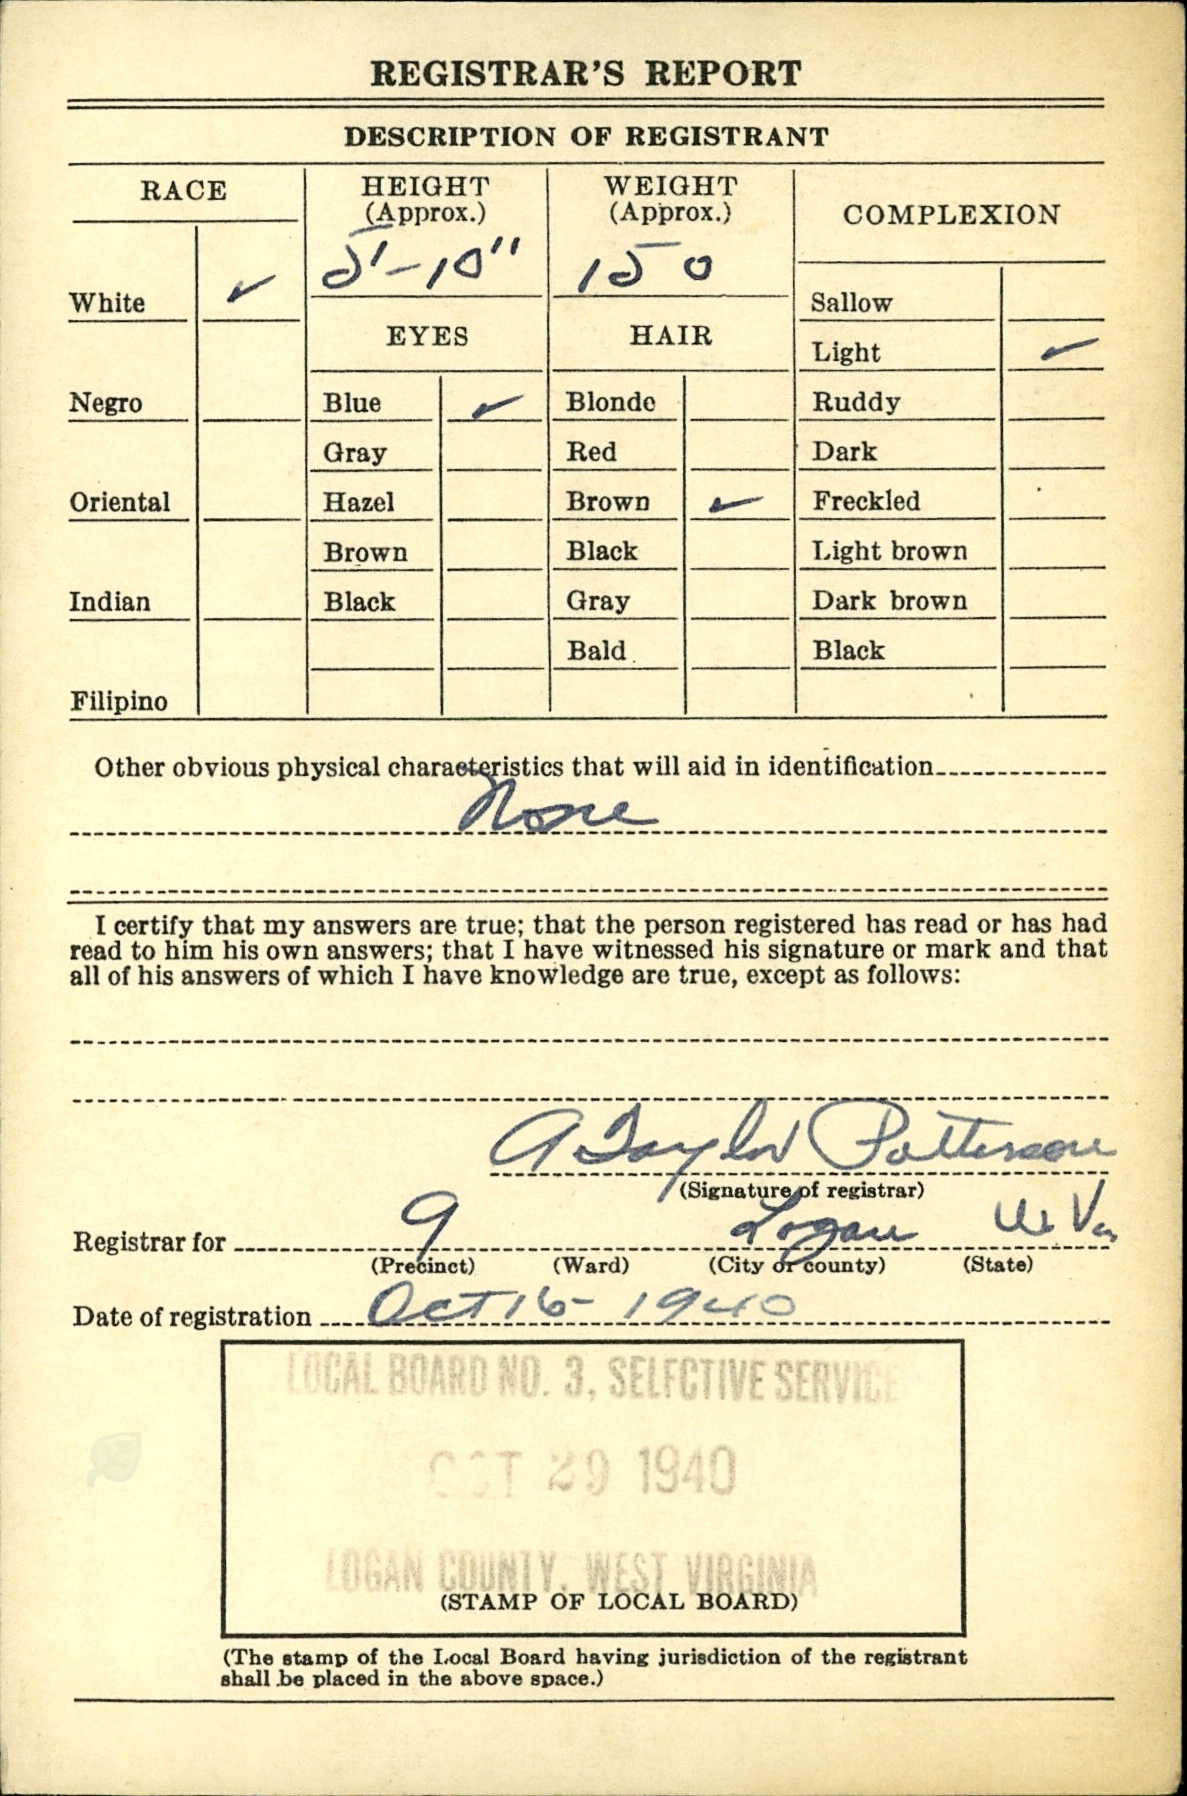 REGISTRAR'S REPORT
DESCRIPTION OF REGISTRANT
RACE
HEIGHT
(Approx.)
WEIGHT
(Approx.)
COMPLEXION
5'-10"
150
White ✓
Sallow
EYES
HAIR
Light ✓
Negro
Blue ✓
Blonde
Ruddy
Gray
Red
Dark
Oriental
Hazel
Brown ✓
Freckled
Brown
Black
Light brown
Indian
Black
Gray
Dark brown
Bald
Black
Filipino
Other obvious physical characteristics that will aid in identification
None
I certify that my answers are true; that the person registered has read or has had
read to him his own answers; that I have witnessed his signature or mark and that
all of his answers of which I have knowledge are true, except as follows:
A Taylor Patterson
(Signature of registrar)
Registrar for 9 Logan W. Va
(Precinct) (Ward) (City or county) (State)
Date of registration Oct 16 - 1940
LOCAL BOARD NO. 3, SELECTIVE SERVICE
OCT 29 1940
LOGAN COUNTY, WEST VIRGINIA
(STAMP OF LOCAL BOARD)
(The stamp of the Local Board having jurisdiction of the registrant
shall be placed in the above space.)